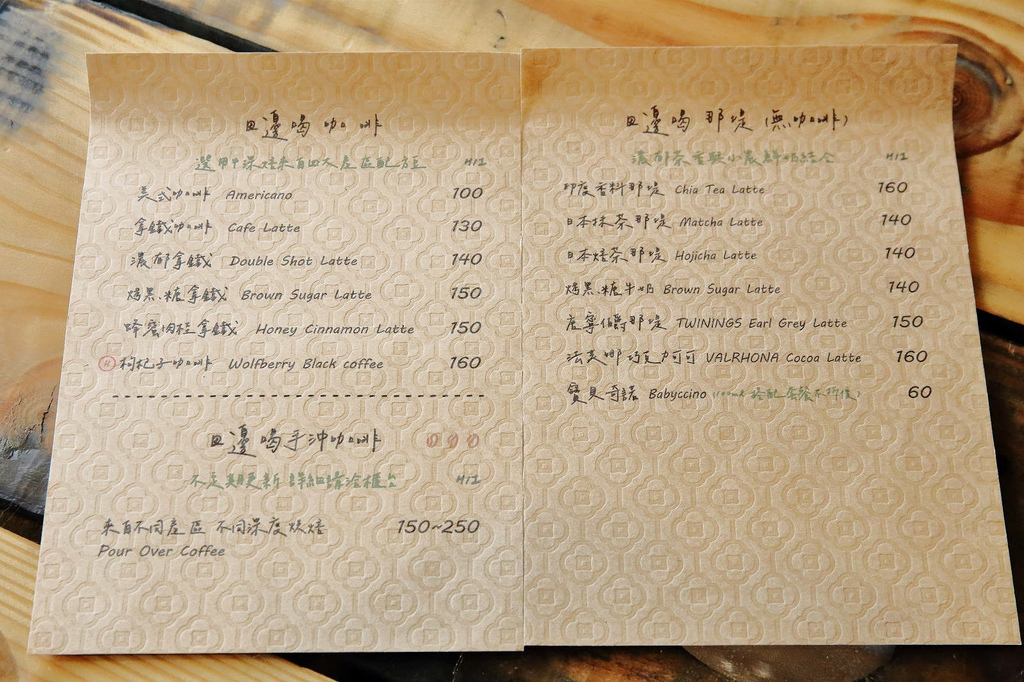 田邊喝咖啡
選用中深焙來自四大產區配方豆 H/I
美式咖啡 Americano 100
拿鐵咖啡 Cafe Latte 130
濃郁拿鐵 Double Shot Latte 140
烤黑糖拿鐵 Brown Sugar Latte 150
蜂蜜肉桂拿鐵 Honey Cinnamon Latte 150
H 枸杞子咖啡 Wolfberry Black coffee 160
田邊喝手沖咖啡
不定期更新 詳細請洽櫃台 H/I
來自不同產區 不同深度炊焙 150~250
Pour Over Coffee
田邊喝那堤(無咖啡)
濃郁茶香與小農鮮奶結合 H/I
印度香料那堤 Chia Tea Latte 160
日本抹茶那堤 Matcha Latte 140
日本焙茶那堤 Hojicha Latte 140
烤黑糖牛奶 Brown Sugar Latte 140
唐寧伯爵那堤 TWININGS Earl Grey Latte 150
法芙娜巧克力可可 VALRHONA Cocoa Latte 160
寶貝奇諾 Babyccino (100ml 搭配套餐不折價) 60